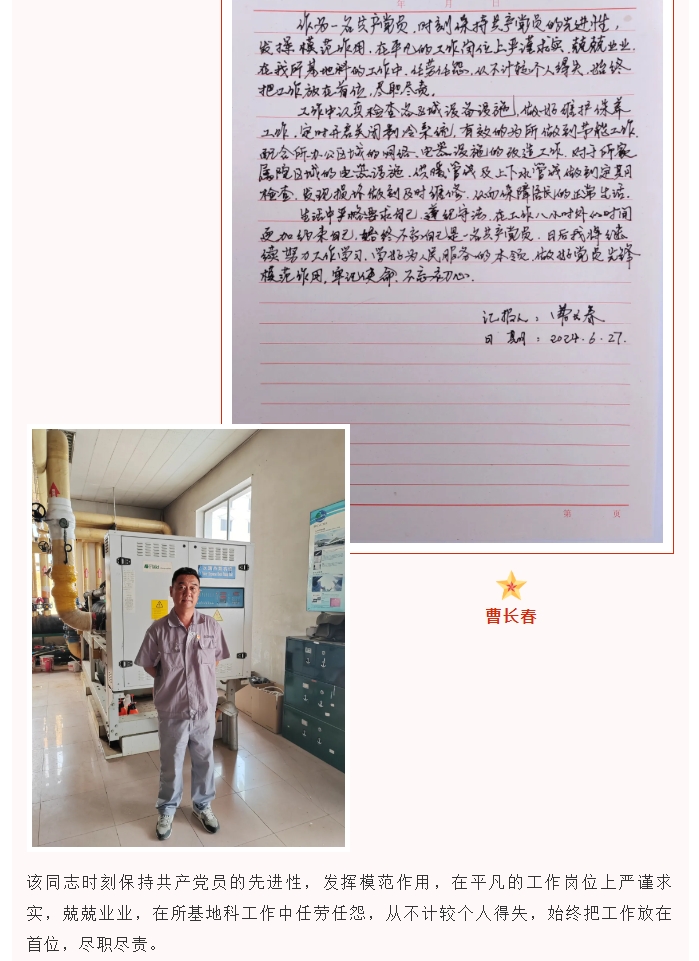 年 月 日
作为一名共产党员，时刻保持共产党员的先进性，
发挥模范作用，在平凡的工作岗位上严谨求实，兢兢业业，
在我所基地科的工作中，任劳任怨，从不计较个人得失，始终
把工作放在首位，尽职尽责。
工作中认真检查总区域设备设施，做好维护保养
工作，定时开启关闭制冷系统，有效的为所做到节能工作，
配合所办公区域的网络、电器设施的改造工作，对于所家
属院区域的电器设施、供暖管线及上下水管线做到定期
检查，发现损坏做到及时维修，从而保障居民的正常生活。
生活中严格要求自己，遵纪守法，在工作八小时外的时间
更加约束自己，始终不忘自己是一名共产党员，日后我将继
续努力工作学习，学好为人民服务的本领，做好党员先锋
模范作用，牢记使命，不忘初心。
汇报人：曹长春
日期：2024.6.27.
第 页
曹长春
该同志时刻保持共产党员的先进性，发挥模范作用，在平凡的工作岗位上严谨求
实，兢兢业业，在所基地科工作中任劳任怨，从不计较个人得失，始终把工作放在
首位，尽职尽责。